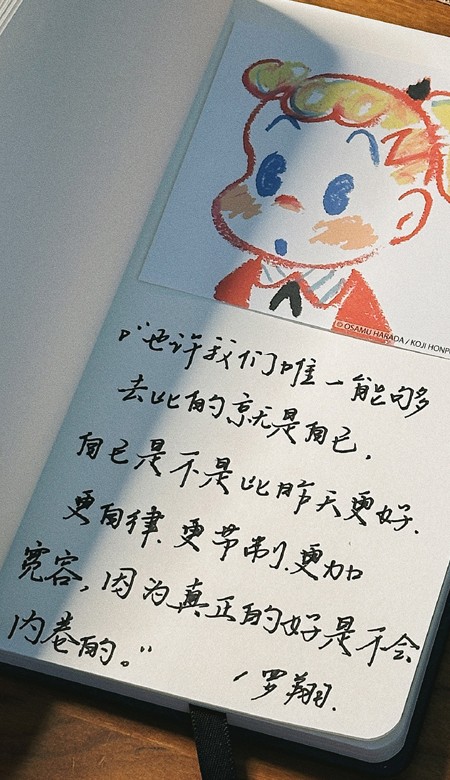 © OSAMU HARADA / KOJI HONPO
“也许我们唯一能够
去比的就是自己,
自己是不是比昨天更好.
更自律.更节制.更加
宽容,因为真正的好是不会
内卷的。”
/罗翔.